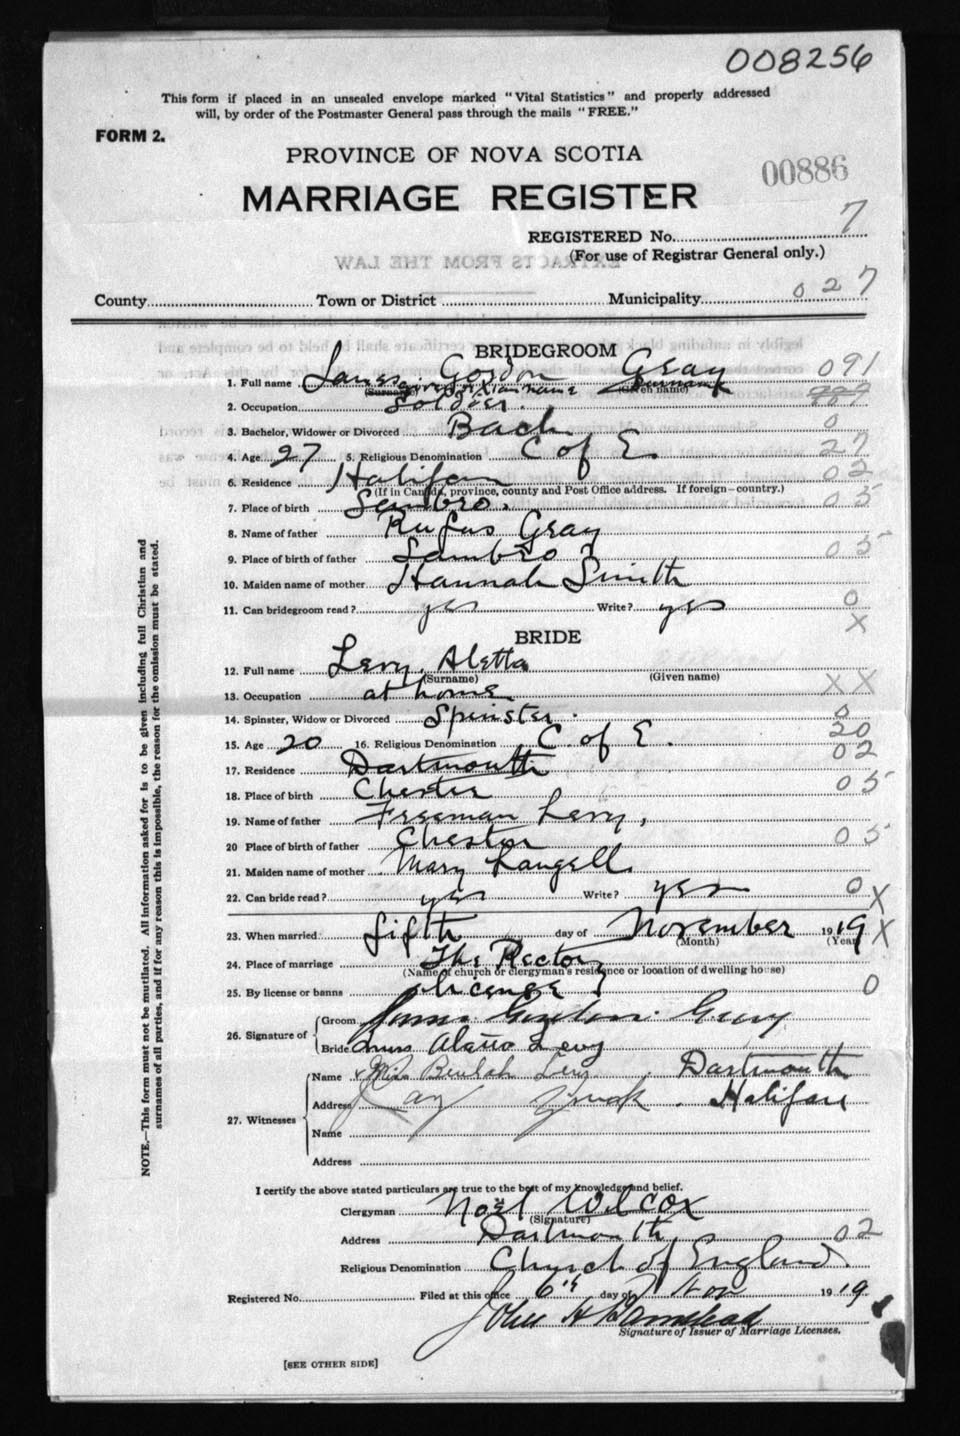 008256
This form if placed in an unsealed envelope marked "Vital Statistics" and properly addressed
will, by order of the Postmaster General pass through the mails "FREE."
FORM 2.
PROVINCE OF NOVA SCOTIA
00886
MARRIAGE REGISTER
REGISTERED No. 7
(For use of Registrar General only.)
EXTRACTS FROM THE LAW
County Town or District Municipality 027
BRIDEGROOM
1. Full name James Gordon Gray 091
(Surname) (Given name)
2. Occupation Soldier.
3. Bachelor, Widower or Divorced Bach 0
4. Age 27 5. Religious Denomination C of E 27
6. Residence Halifax 02
(If in Canada, province, county and Post Office address. If foreign—country.)
7. Place of birth Sambro. 05
8. Name of father Rufus Gray
9. Place of birth of father Sambro 05
10. Maiden name of mother Hannah Smith
11. Can bridegroom read? yes Write? yes 0
X
BRIDE
12. Full name Levy, Aletta
(Surname) (Given name)
13. Occupation at home XX
14. Spinster, Widow or Divorced Spinster. 0
15. Age 20 16. Religious Denomination C. of E. 20
17. Residence Dartmouth 02
18. Place of birth Chester 05
19. Name of father Freeman Levy,
20 Place of birth of father Chester 05
21. Maiden name of mother Mary Langell.
22. Can bride read? yes Write? yes 0 X
23. When married fifth day of November 1919 X
(Month) (Year)
24. Place of marriage The Rectory
(Name of church or clergyman's residence or location of dwelling house)
25. By license or banns license 0
26. Signature of Groom James Gordon Gray
Bride Alatta Levy
27. Witnesses
Name Miss Beulah Levy Dartmouth
Address Ray Halifax
Name
Address
I certify the above stated particulars are true to the best of my knowledge and belief.
Clergyman Noël Wilcox
(Signature)
Address Dartmouth 02
Religious Denomination Church of England.
Registered No. Filed at this office 6th day of Nov 1919
John H
Signature of Issuer of Marriage Licenses.
[SEE OTHER SIDE]
NOTE.—This form must not be mutilated. All information asked for is to be given including full Christian and
surnames of all parties, and if for any reason this is impossible, the reason for the omission must be stated.